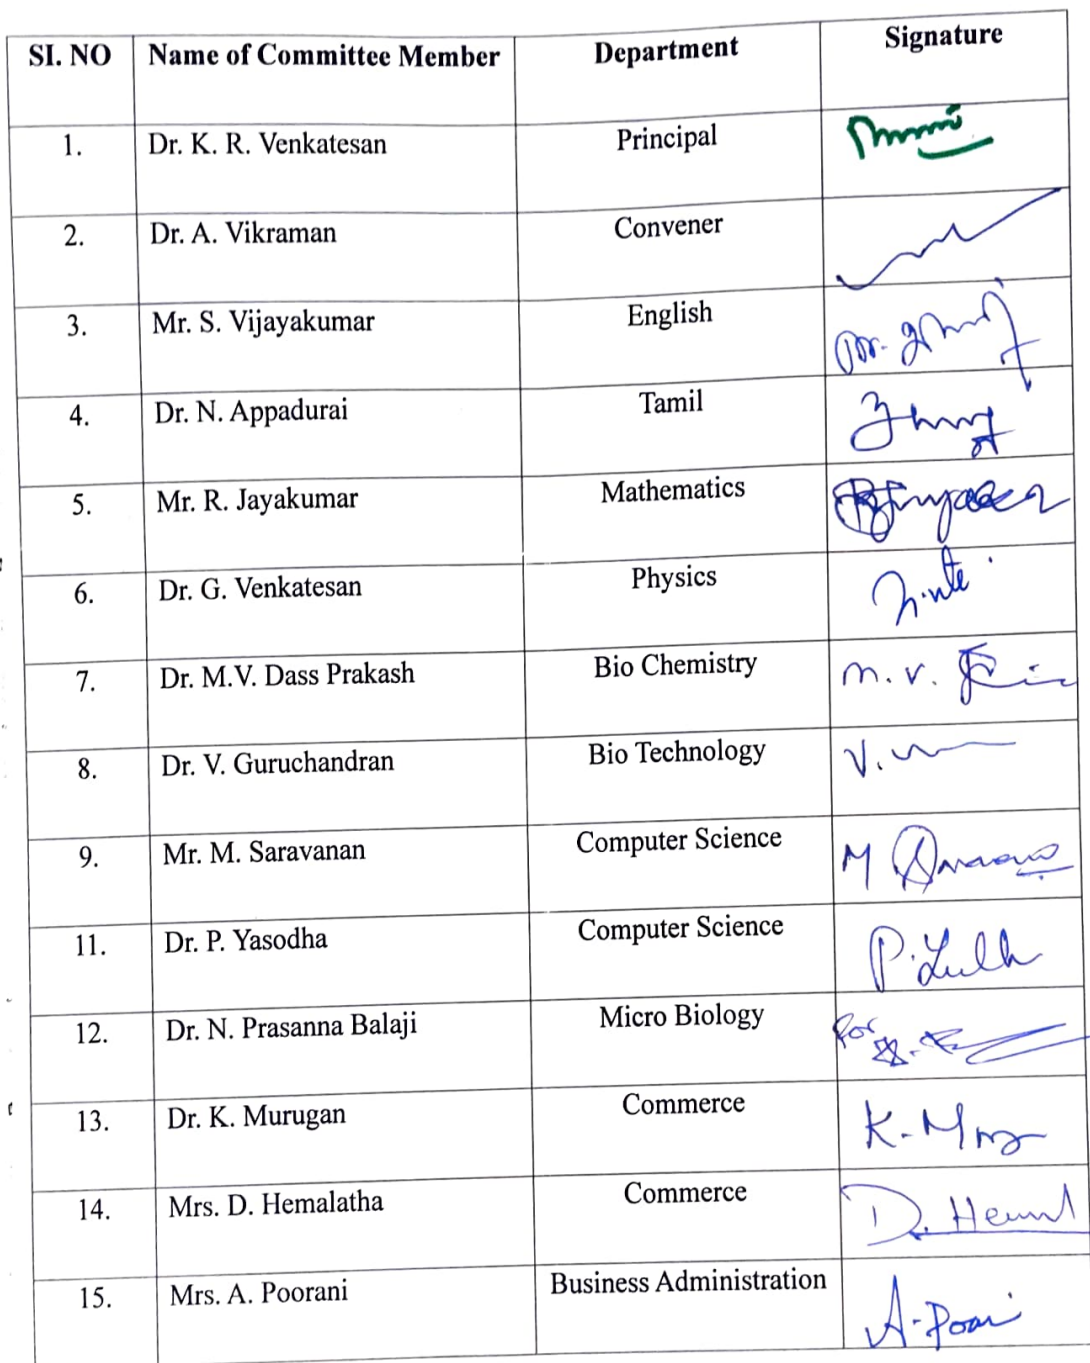 SI. NO Name of Committee Member Department Signature
1. Dr. K. R. Venkatesan Principal
2. Dr. A. Vikraman Convener
3. Mr. S. Vijayakumar English
4. Dr. N. Appadurai Tamil
5. Mr. R. Jayakumar Mathematics
6. Dr. G. Venkatesan Physics
7. Dr. M.V. Dass Prakash Bio Chemistry M. V.
8. Dr. V. Guruchandran Bio Technology V.
9. Mr. M. Saravanan Computer Science M
11. Dr. P. Yasodha Computer Science P.
12. Dr. N. Prasanna Balaji Micro Biology for
13. Dr. K. Murugan Commerce K.
14. Mrs. D. Hemalatha Commerce D.
15. Mrs. A. Poorani Business Administration A.